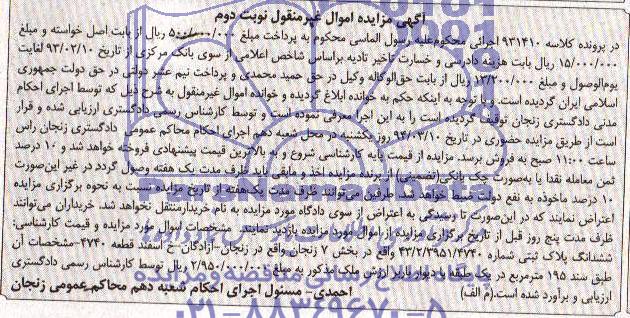 آگهی مزایده اموال غیرمنقول نوبت دوم
در پرونده کلاسه ۹۳۱۴۱۰ اجرائی محکوم‌علیه رسول الماسی محکوم به پرداخت مبلغ ۵۰۰/۰۰۰/۰۰۰ ریال از بابت اصل خواسته و مبلغ
۱۵/۰۰۰/۰۰۰ ریال بابت هزینه دادرسی و خسارت تاخیر تادیه براساس شاخص اعلامی از سوی بانک مرکزی از تاریخ ۹۳/۰۲/۱۰ لغایت
یوم‌الوصول و مبلغ ۱۳/۲۰۰/۰۰۰ ریال از بابت حق‌الوکاله وکیل در حق حمید محمدی و پرداخت نیم عشر دولتی در حق دولت جمهوری
اسلامی ایران گردیده است، و با توجه به اینکه حکم به خوانده ابلاغ گردیده و خوانده اموال غیرمنقول به شرح ذیل که توسط اجرای احکام
مدنی دادگستری زنجان توقیف گردیده است را به این اجرا معرفی نموده است و توسط کارشناس رسمی دادگستری ارزیابی شده و قرار
است از طریق مزایده حضوری در تاریخ ۹۴/۰۳/۱۰ روز یکشنبه در محل شعبه دهم اجرای احکام محاکم عمومی دادگستری زنجان راس
ساعت ۱۱:۰۰ صبح به فروش برسد. مزایده از قیمت پایه کارشناسی شروع و به بالاترین قیمت پیشنهادی فروخته خواهد شد و ۱۰ درصد
ثمن معامله نقدا یا به‌صورت چک بانکی(تضمینی) از برنده مزایده اخذ و مابقی باید ظرف مدت یک هفته وصول گردد در غیر این‌صورت
۱۰ درصد ماخوذه به نفع دولت ضبط خواهد شد. طرفین می‌توانند ظرف مدت یک‌هفته از تاریخ مزایده نسبت به نحوه برگزاری مزایده
اعتراض نمایند که در این‌صورت تا رسیدگی به اعتراض از سوی دادگاه مورد مزایده به نام خریدار منتقل نخواهد شد. خریداران می‌توانند
ظرف مدت پنج روز قبل از تاریخ برگزاری مزایده از اموال مورد مزایده بازدید نمایند. مشخصات اموال مورد مزایده و قیمت کارشناسی:
ششدانگ پلاک ثبتی شماره ۴۳/۲/۳۹۵۱/۴۷۴۰ واقع در بخش ۷ زنجان واقع در زنجان-آزادگان-خ اسفند قطعه ۴۷۴۰-مشخصات آن
طبق سند ۱۹۵ مترمربع در یک طبقه با دیوار باربر ارزش ملک مذکور به مبلغ ۲/۹۵۰/۰۰۰/۰۰۰ ریال توسط کارشناس رسمی دادگستری
ارزیابی و برآورد شده است.(م الف) احمدی- مسئول اجرای احکام شعبه دهم محاکم عمومی زنجان
۰۲۱-۸۸۳۴۹۶۷۰-۵